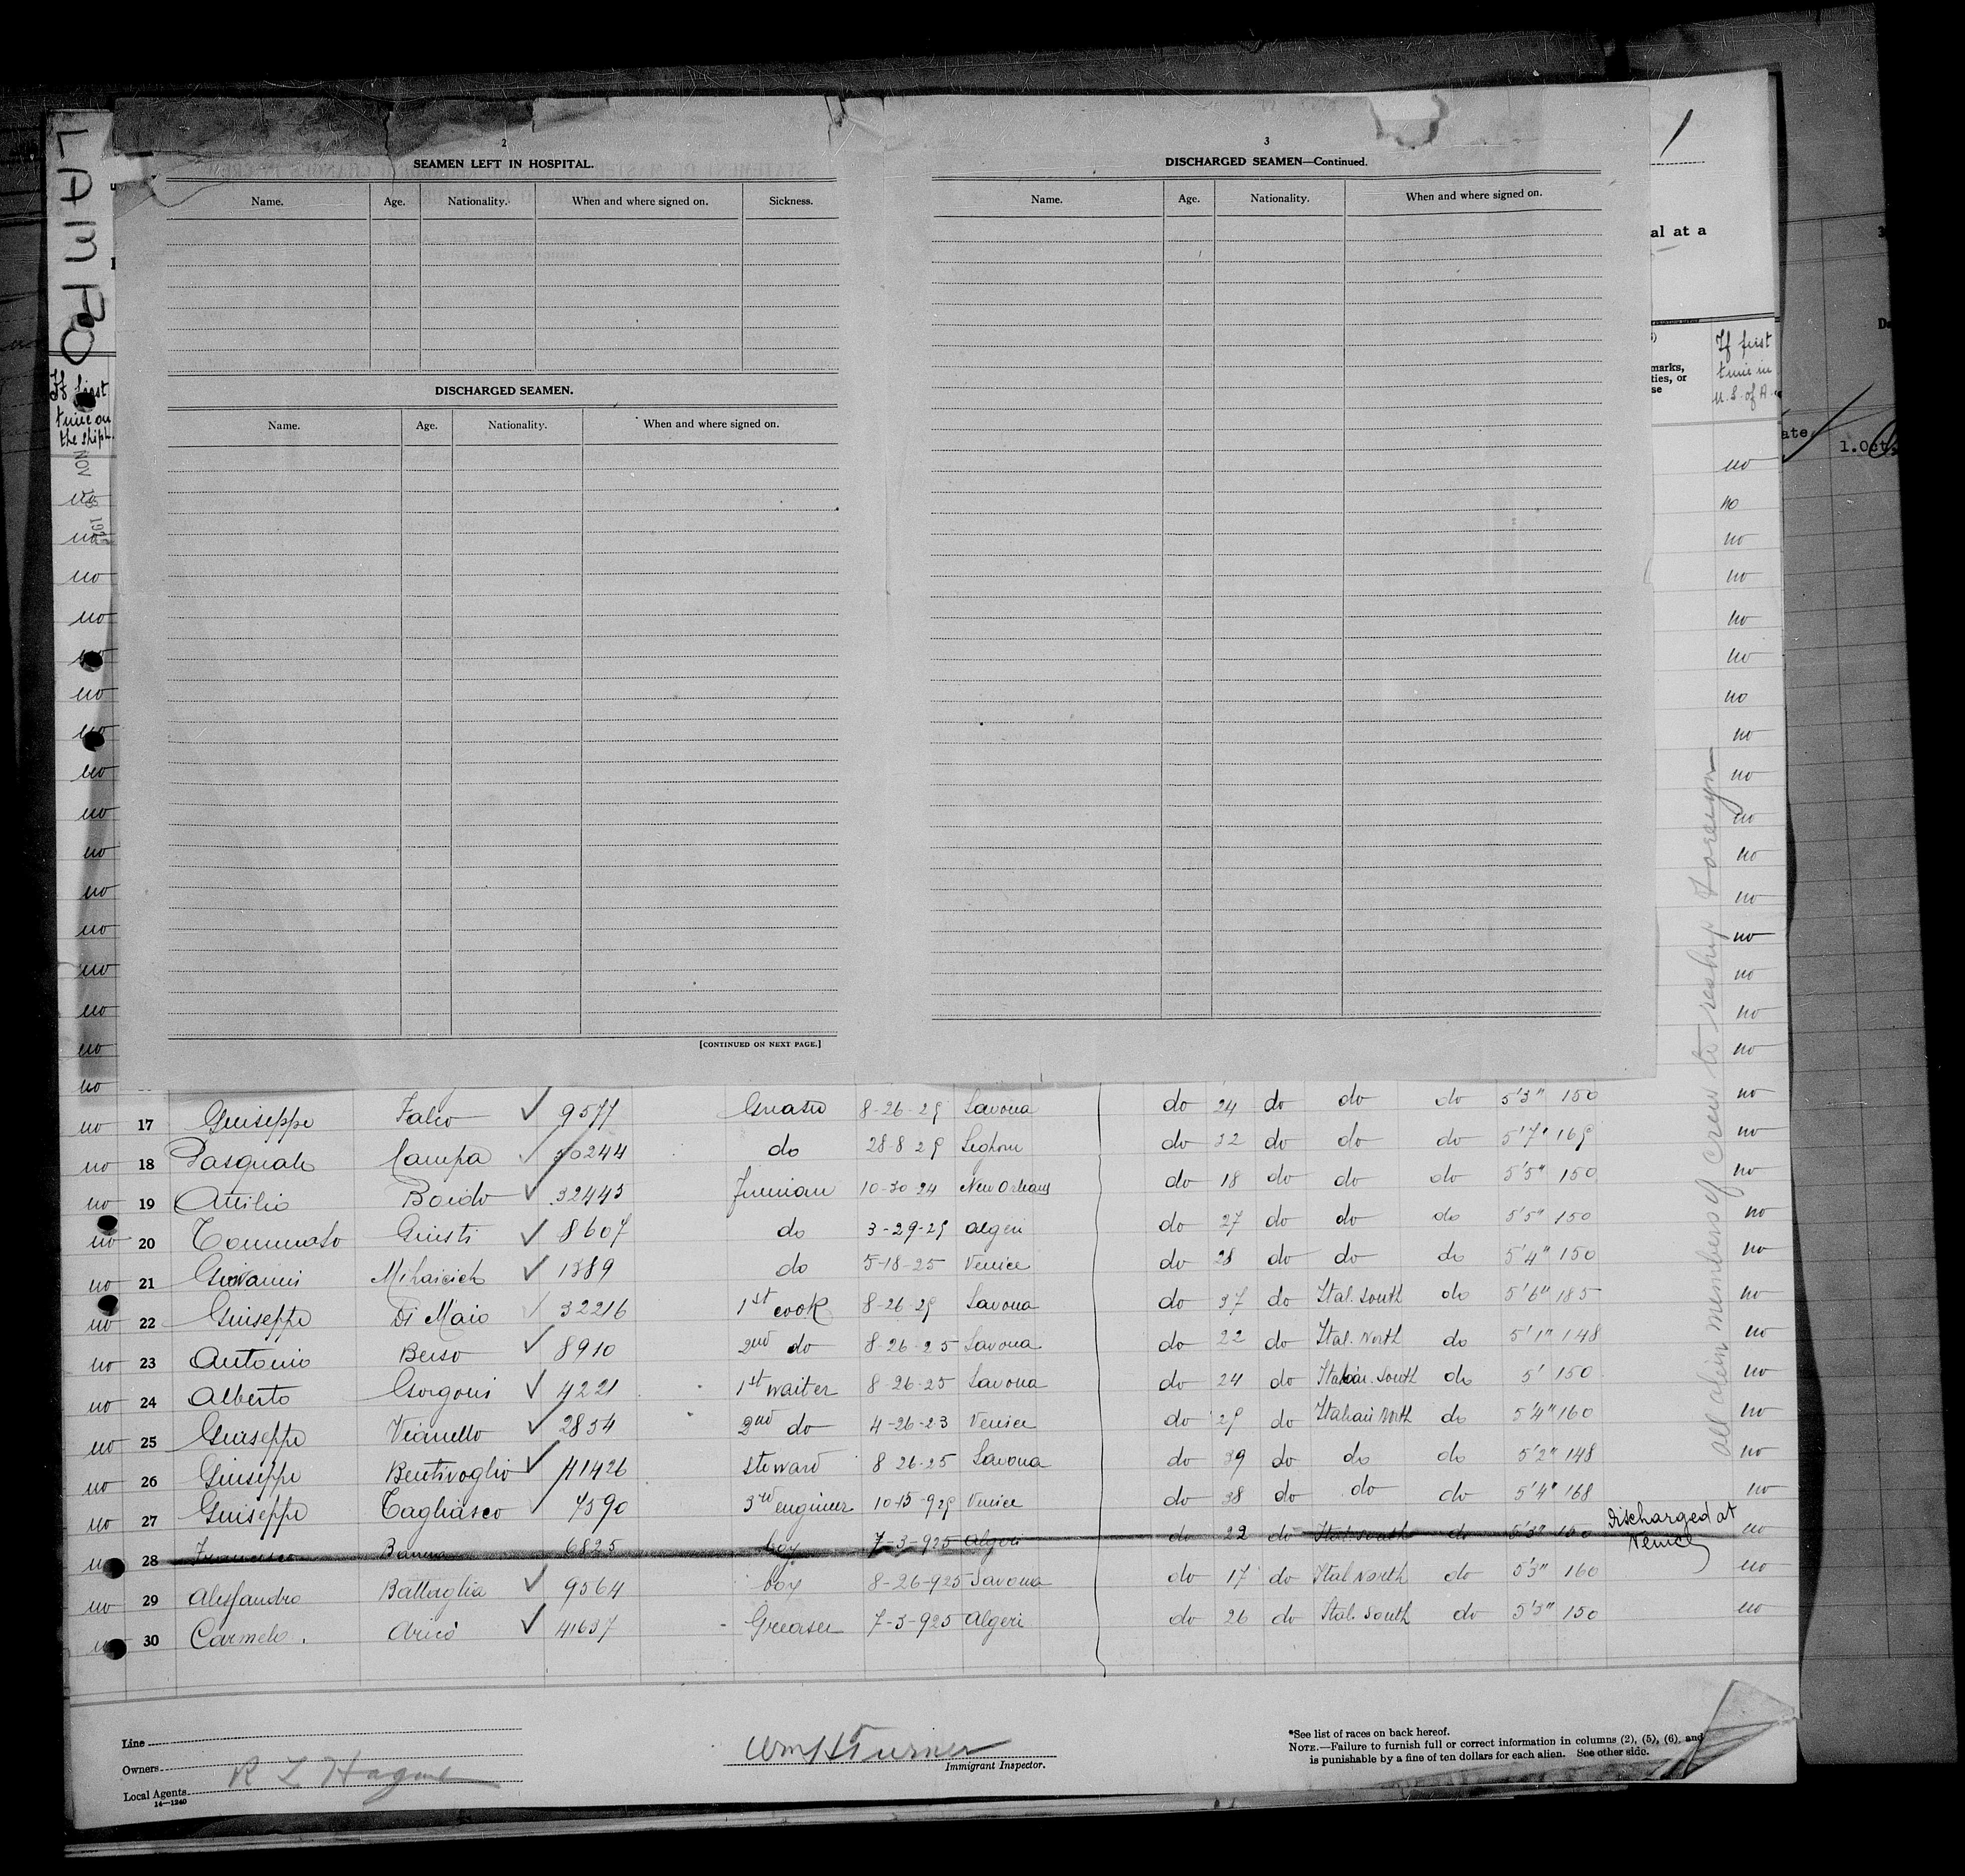 LAMPO
1
2
SEAMEN LEFT IN HOSPITAL.
Name. Age. Nationality. When and where signed on. Sickness.
DISCHARGED SEAMEN.
Name. Age. Nationality. When and where signed on.
[CONTINUED ON NEXT PAGE.]
3
DISCHARGED SEAMEN—Continued.
Name. Age. Nationality. When and where signed on.
al at a
marks,
ties, or
se
If first
time in
U.S. of A.
If first
time on
the ship
NOV
ate
1.Oct
no 17 Giuseppe Falco 9577 8-26-25 Savona do 24 do do do 5'3" 150 no
no 18 Pasquale Campa 30244 do 28-8 25 Leghorn do 32 do do do 5'7" 165 no
no 19 Attilio Boido 32445 10-30 24 New Orleans do 18 do do do 5'5" 150 no
no 20 Tommaso Giusti 8607 do 3-29-25 Algeri do 27 do do do 5'5" 150 no
no 21 Giovanni Mihaicich 1389 do 5-18-25 Venice do 28 do do do 5'4" 150 no
no 22 Giuseppe Di Maio 32216 1st cook 8-26-25 Savona do 37 do Ital. South do 5'6" 185 no
no 23 Antonio Berso 8910 2nd do 8-26-25 Savona do 22 do Ital. North do 5'1" 148 no
no 24 Alberto Gorgoni 4221 1st waiter 8-26-25 Savona do 24 do Italian. South do 5' 150 no
no 25 Giuseppe Vianello 2854 2nd do 4-26-23 Venice do 25 do Italian North do 5'4" 160 no
no 26 Giuseppe Bentivoglio 41426 steward 8-26-25 Savona do 39 do do do 5'2" 148 no
no 27 Giuseppe Tagliasco 4590 3rd engineer 10-15-925 Venice do 38 do do do 5'4" 168 no
no 28 Francesco 6825 boy 7-3-925 Algeri do 22 do Ital. South do 5'3" 150 Discharged at Venice no
no 29 Alessandro Battaglia 9564 boy 8-26-925 Savona do 17 do Ital North do 5'3" 160 no
no 30 Carmelo. Aricò 41637 Greaser 7-3-925 Algeri do 26 do Ital. South do 5'3" 150 no
all alien members of crew to reship foreign
Line
Owners
Local Agents
14—1240
R L Hagan
Wm H Turner
Immigrant Inspector.
*See list of races on back hereof.
NOTE.—Failure to furnish full or correct information in columns (2), (5), (6), and
is punishable by a fine of ten dollars for each alien. See other side.